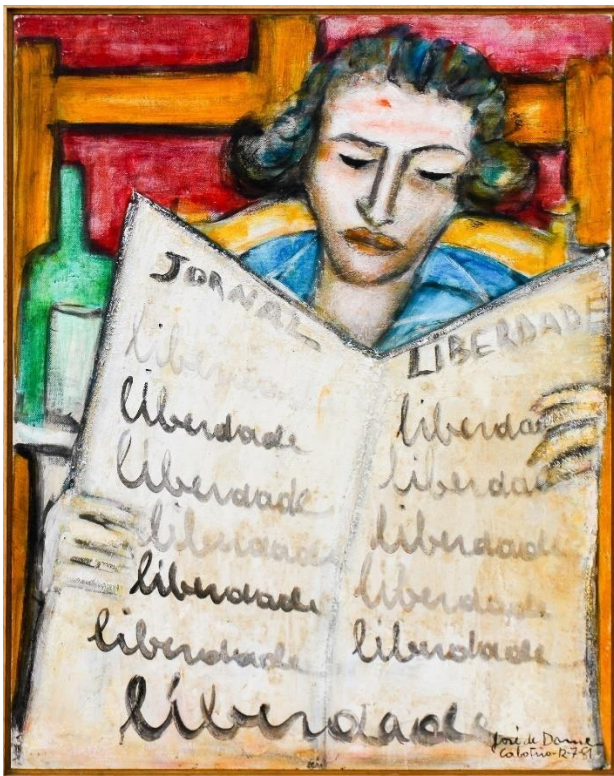 JORNAL
liberdade
liberdade
liberdade
liberdade
liberdade
liberdade
LIBERDADE
liberdade
liberdade
liberdade
liberdade
liberdade
liberdade
José de Dome
Cabo Frio-12-7-81